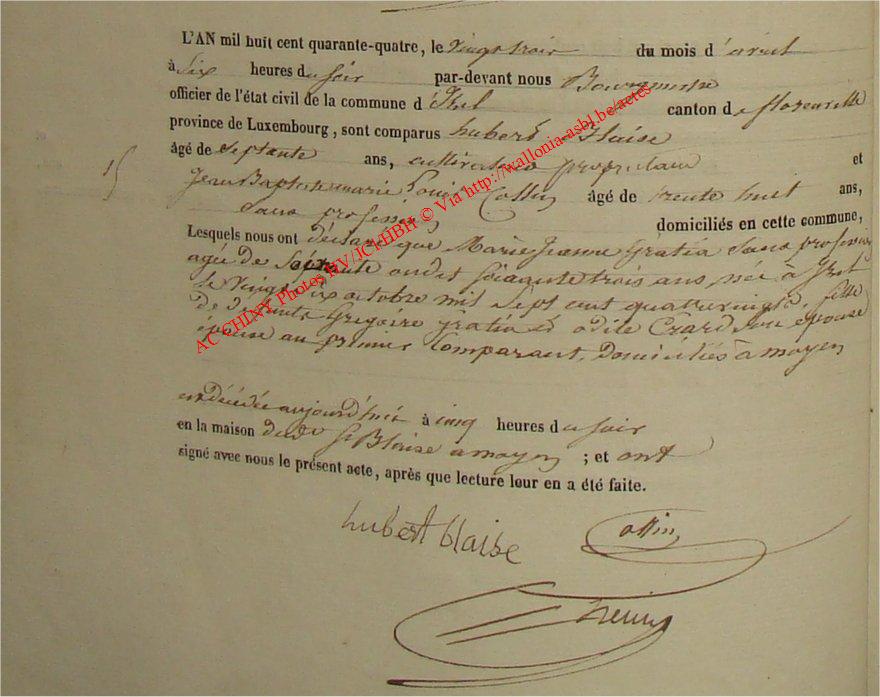 L'AN mil huit cent quarante-quatre, le vingt trois du mois d'avril
à six heures du soir par-devant nous Bourgmestre
officier de l'état civil de la commune d'Izel canton de florenville
province de Luxembourg, sont comparus hubert Blaise
âgé de septante ans, cultivateur propriétaire et
15
Jean Baptiste marie Louis Collin âgé de trente huit ans,
sans profession domiciliés en cette commune,
Lesquels nous ont déclaré que Marie Jeanne Gratia sans profession
agée de soixante trois ans, née à Izel
le vingt six octobre mil sept cent quatrevingt, fille
de Grégoire Gratia et odile son épouse
épouse au premier comparant, domiciliés à moyen
est décédée aujourd'hui à cinq heures du soir
en la maison dudit Sr Blaise a moyen ; et ont
signé avec nous le présent acte, après que lecture leur en a été faite.
hubert blaise
AC CHINY Photos HV/JCT/HBH © Via http://wallonia-asbl.be/actes